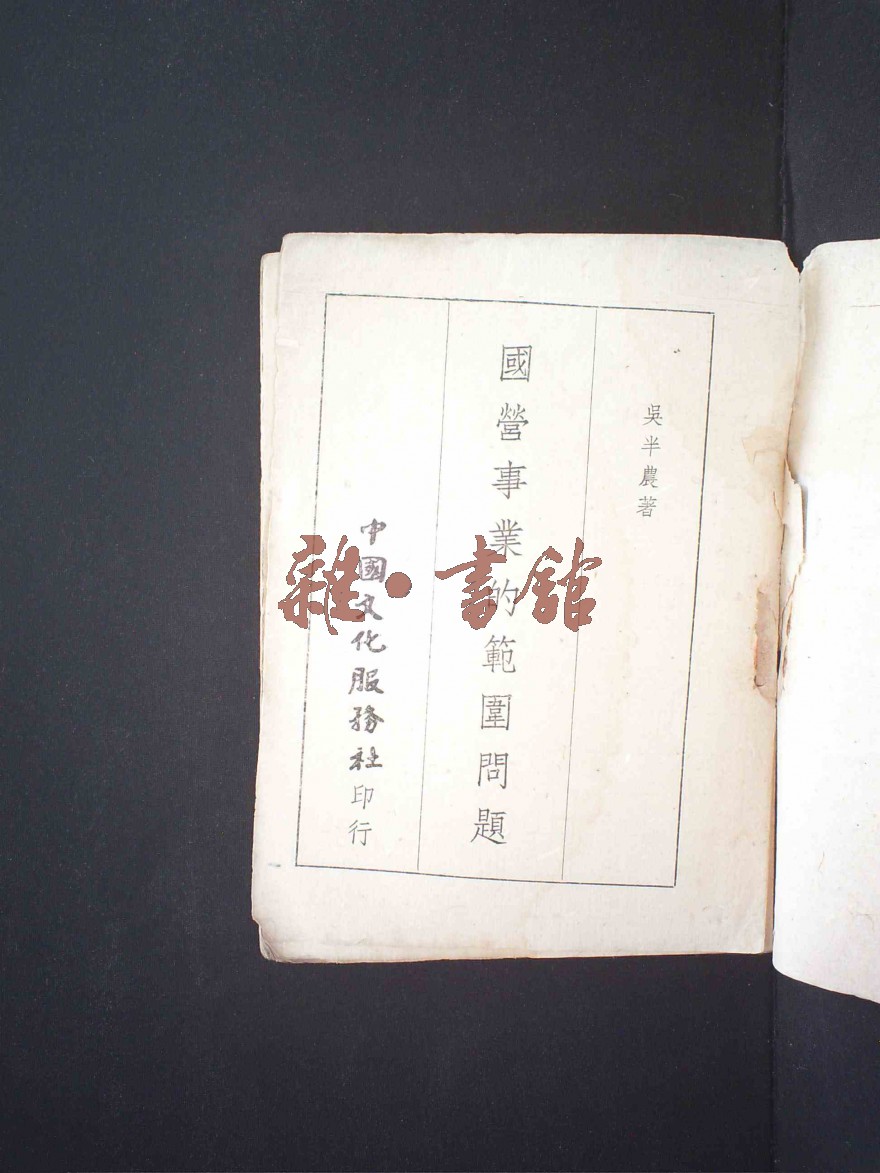 吳半農著
國營事業的範圍問題
中國文化服務社印行
雜·書館